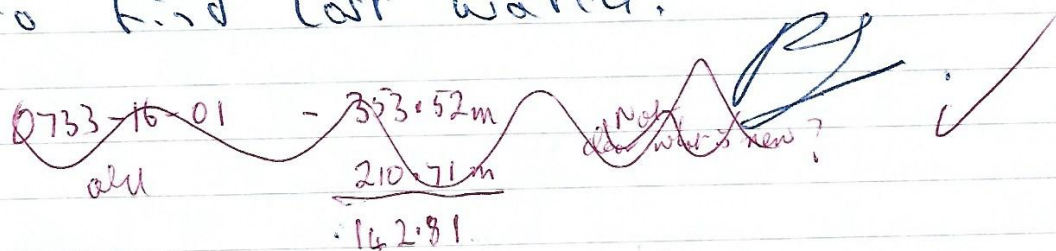 to find lost watch.
0733-16-01 - 353.52m Not
what is new?
old 210.71m
142.81